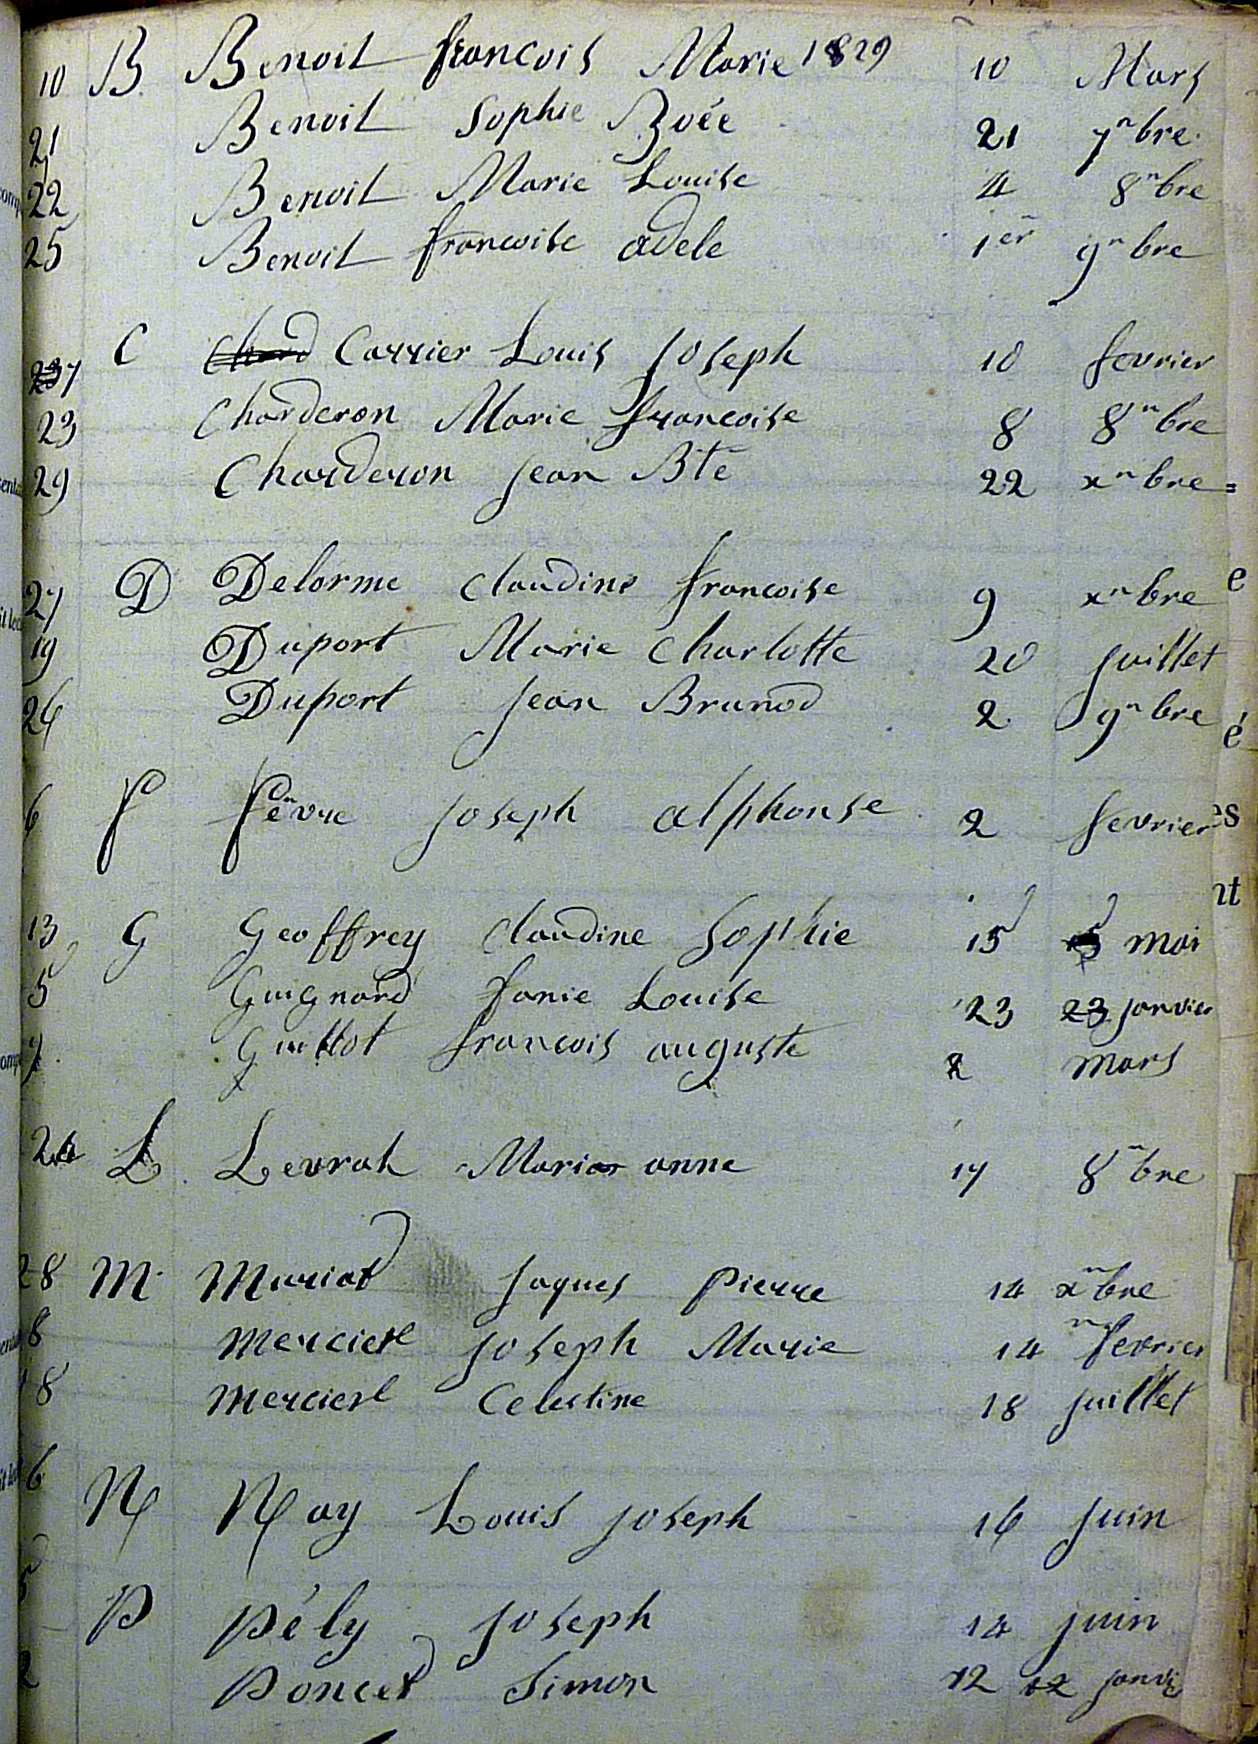 10 B Benoit francois Marie 1829 10 Mars
21 Benoit Sophie Zoée 21 7nbre
22 Benoit Marie Louise 4 8nbre
25 Benoit francoise adele 1er 9nbre
C Carrier Louis Joseph 10 fevrier
23 Charderon Marie francoise 8 8nbre
29 Charderon Jean Bte 22 xnbre=
27 D Delorme claudine francoise 9 xnbre
19 Duport Marie Charlotte 20 juillet
26 Duport Jean Brunod 2 9nbre
6 f fevre Joseph alphonse 2 fevrier
13 G Geoffrey claudine Sophie 15 mai
5 Guignard fanie Louise 23 23 janvier
Guillot francois auguste 2 mars
24 L Levrah Marie anne 17 8nbre
28 M Muriad Jaques pierre 14 xnbre
8 Mercier Joseph Marie 14 fevrier
18 Mercier Celestine 18 juillet
6 N Nay Louis joseph 16 juin
P Pély Joseph 14 juin
2 Poncet Simon 12 12 janvi